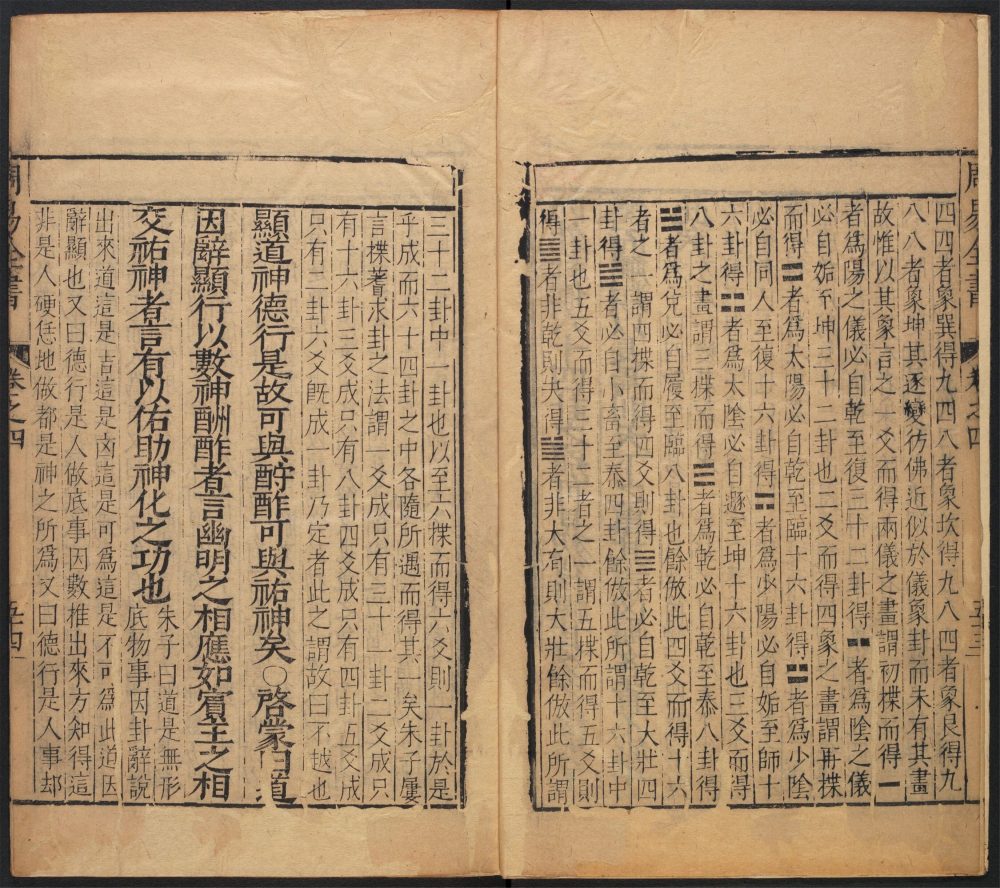 周易全書 卷之四 五十三
四四者象巽得九四八者象坎得九八四者象艮得九
八八者象坤其逐變彷彿近似於儀象卦而未有其畫
故惟以其象言之一爻而得兩儀之畫謂初揲而得⚊
者爲陽之儀必自乾至復三十二卦得⚋者爲陰之儀
必自姤至坤三十二卦也二爻而得四象之畫謂再揲
而得⚌者爲太陽必自乾至臨十六卦得⚍者爲少陰
必自同人至復十六卦得⚎者爲少陽必自姤至師十
六卦得⚏者爲太陰必自遯至坤十六卦也三爻而得
八卦之畫謂三揲而得☰者爲乾必自乾至泰八卦得
☱者爲兌必自履至臨八卦也餘倣此四爻而得十六
者之一謂四揲而得四爻則得者必自乾至大壯四
卦得者必自小畜至泰四卦餘倣此所謂十六卦中
一卦也五爻而得三十二者之一謂五揲而得五爻則
得者非乾則夬得者非大有則大壯餘倣此所謂
三十二卦中一卦也以至六揲而得六爻則一卦於是
乎成而六十四卦之中各隨所遇而得其一矣朱子屢
言揲蓍求卦之法謂一爻成只有三十一卦二爻成只
有十六卦三爻成只有八卦四爻成只有四卦五爻成
只有二卦六爻既成一卦乃定者此之謂故曰不越也
顯道神德行是故可與酬酢可與祐神矣○啓蒙曰道
因辭顯行以數神酬酢者言幽明之相應如賓主之相
交祐神者言有以佑助神化之功也
朱子曰道是無形
底物事因卦辭說
出來道這是吉這是凶這是可爲這是不可爲此道因
辭顯也又曰德行是人做底事因數推出來方知得這
非是人硬恁地做都是神之所爲又曰德行是人事却
周易全書 卷之四 五十四